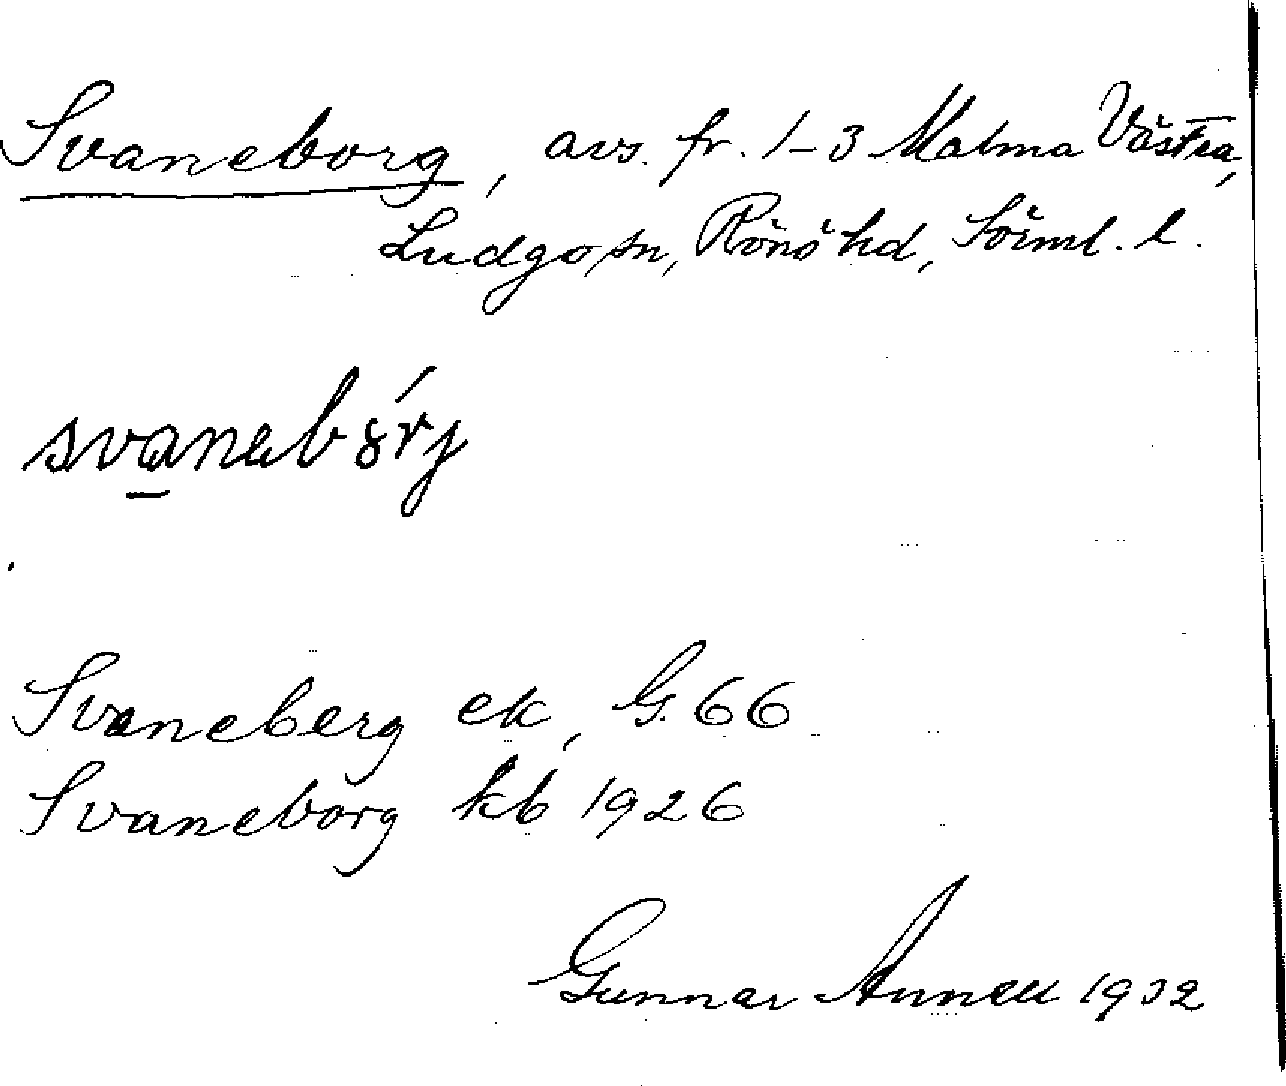 Svaneborg, avs. fr. 1-3 Malma Västra,
Ludgo sn, Rönö hd, Söiml. l.
svanebórj
Svaneberg ek, G. 66
Svaneborg kb 1926
Gunnar Annell 1932